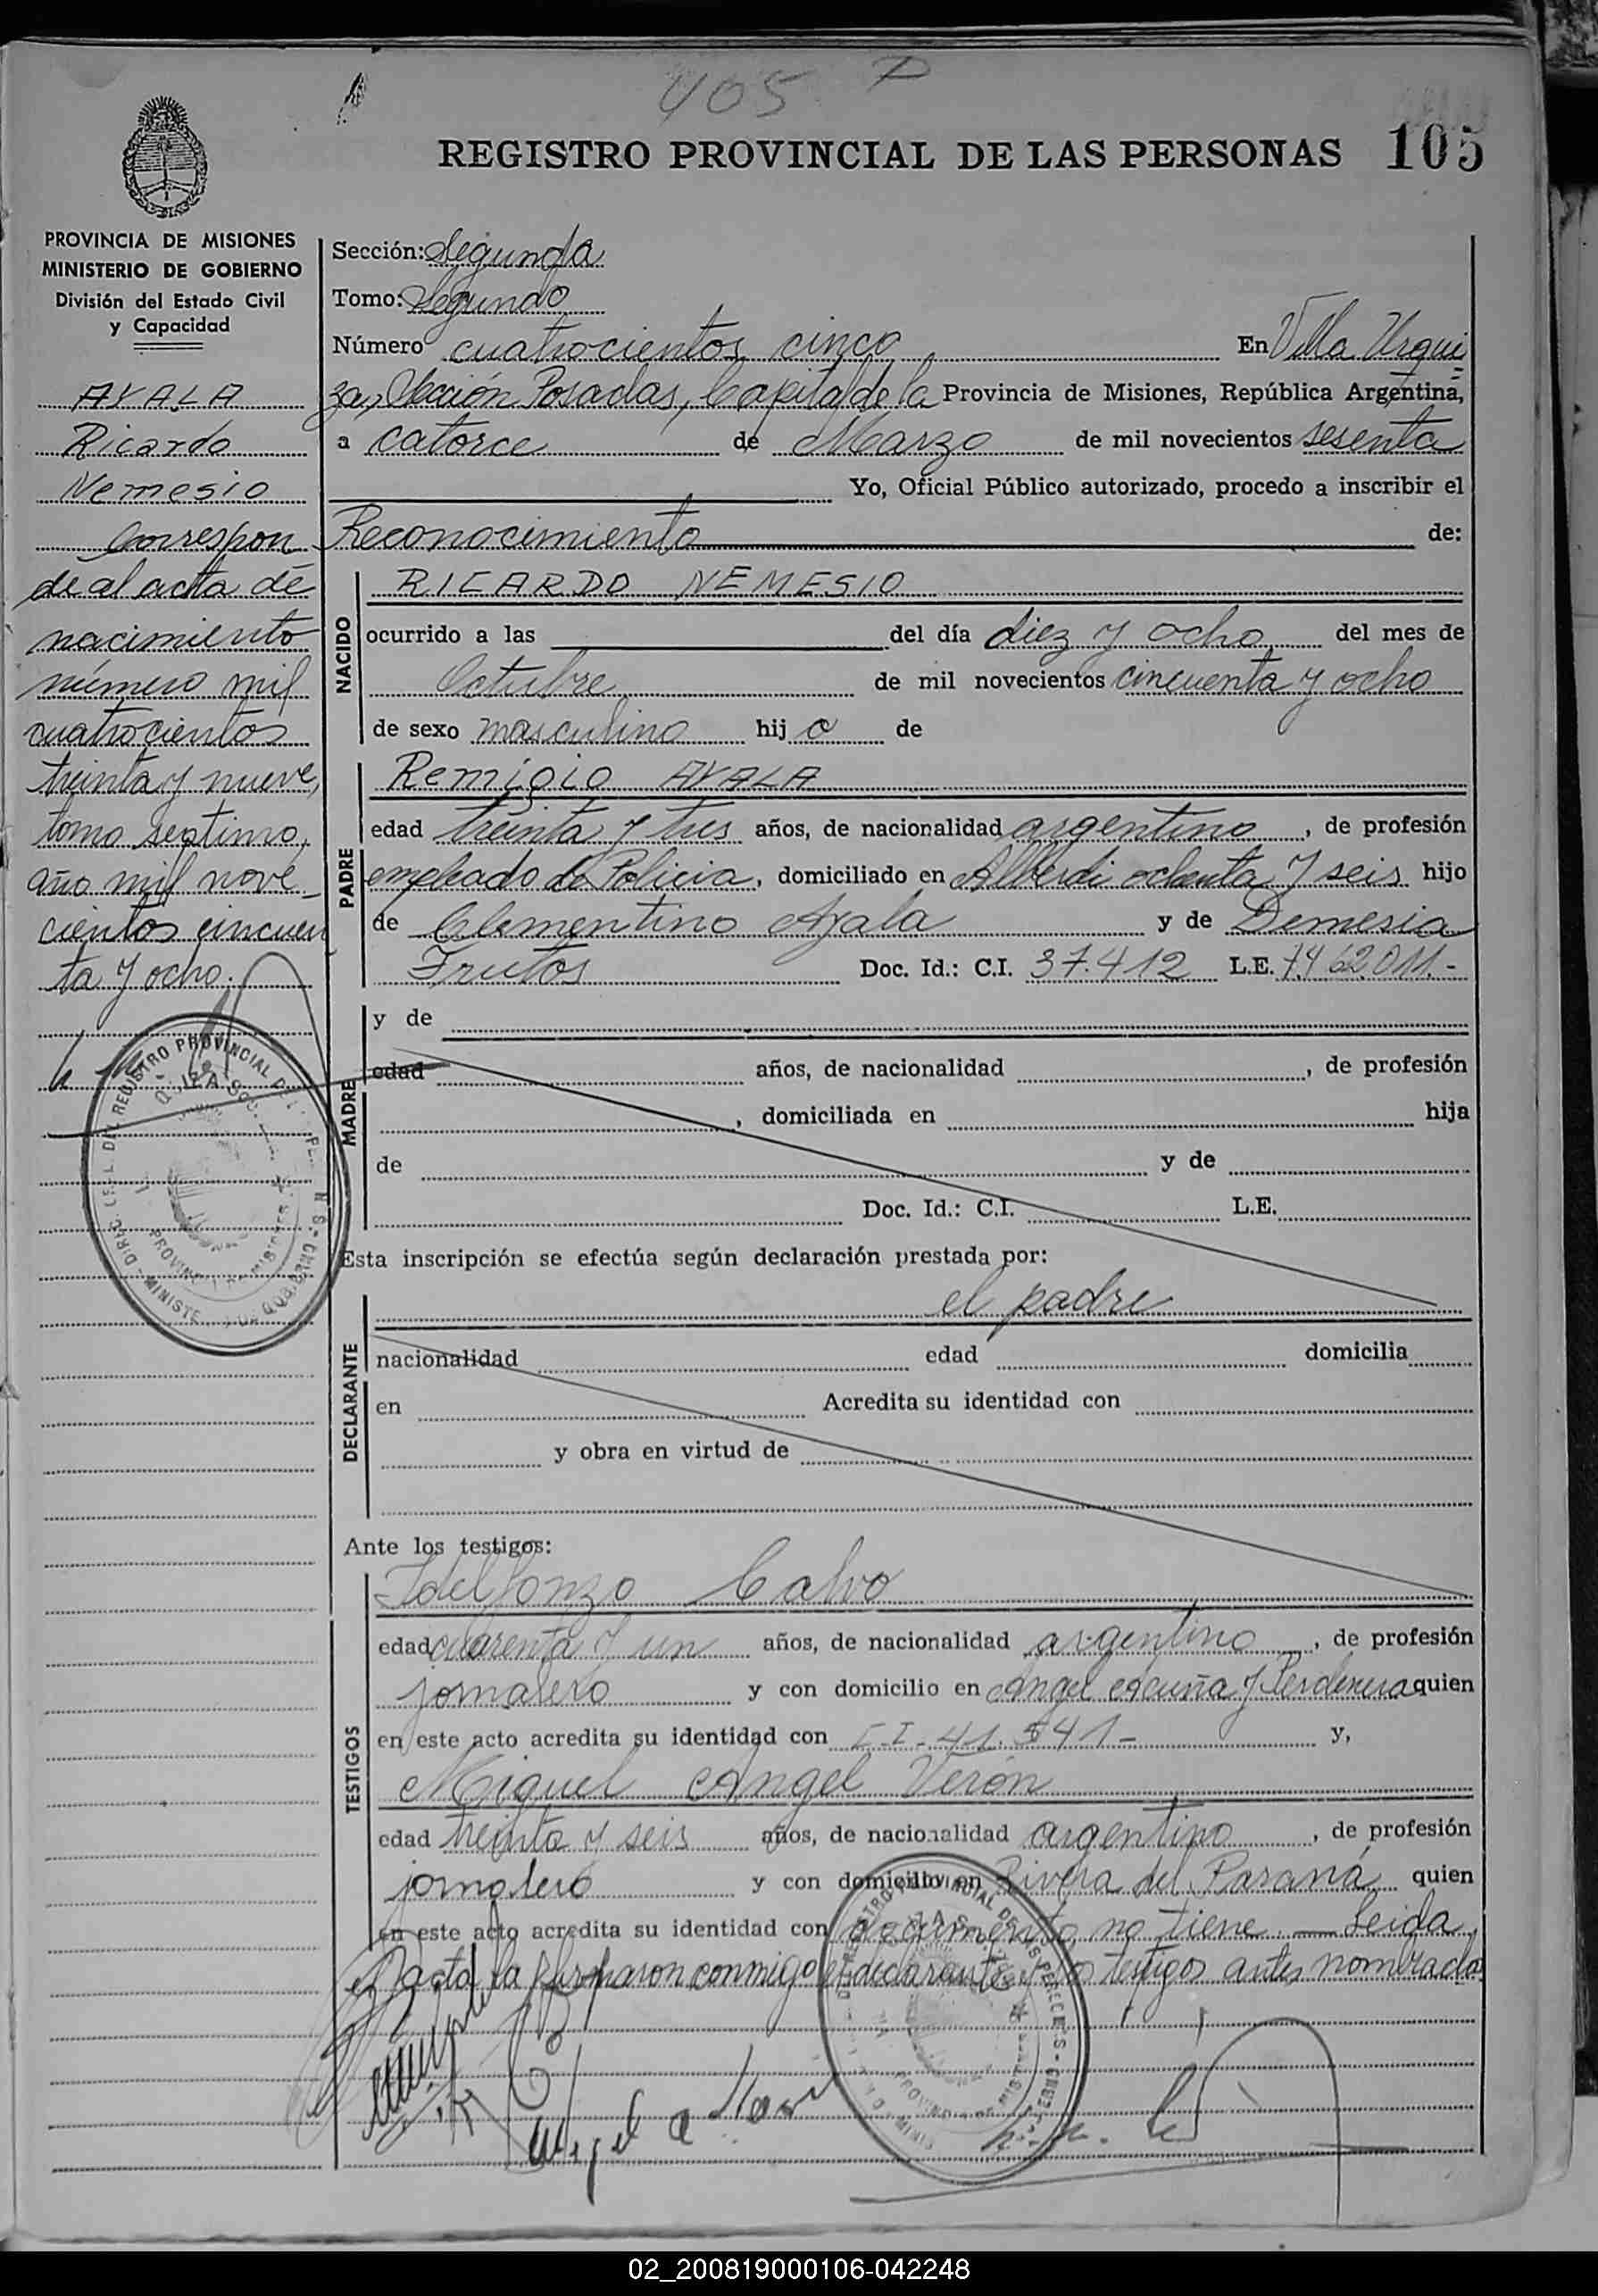 405
REGISTRO PROVINCIAL DE LAS PERSONAS 105
PROVINCIA DE MISIONES
MINISTERIO DE GOBIERNO
División del Estado Civil
y Capacidad
AYALA
Ricardo
Nemesio
Correspon
de al acta de
nacimiento
número mil
cuatrocientos
treinta y nueve,
tomo septimo,
año mil nove
cientos cincuen
ta y ocho.
Sección: Segunda
Tomo: Segundo
Número cuatrocientos cinco En Villa Urqui=
za, Sección Posadas, Capital de la Provincia de Misiones, República Argentina,
a catorce de Marzo de mil novecientos sesenta
Yo, Oficial Público autorizado, procedo a inscribir el
Reconocimiento de:
NACIDO
RICARDO NEMESIO
ocurrido a las del día diez y ocho del mes de
Octubre de mil novecientos cincuenta y ocho
de sexo masculino hij o de
PADRE
Remigio AYALA
edad treinta y tres años, de nacionalidad argentino, de profesión
empleado de Policia, domiciliado en Alberdi ochenta y seis hijo
de Clementino Ayala y de Demesia
Frutos Doc. Id.: C.I. 37.412 L.E. 7.462.011.-
MADRE
y de
edad años, de nacionalidad , de profesión
, domiciliada en hija
de y de
Doc. Id.: C.I. L.E.
Esta inscripción se efectúa según declaración prestada por:
DECLARANTE
el padre
nacionalidad edad domicilia
en Acredita su identidad con
y obra en virtud de
Ante los testigos:
TESTIGOS
Idelfonzo Calvo
edad cuarenta y un años, de nacionalidad argentino, de profesión
jornalero y con domicilio en Angel Acuña y Perdenera quien
en este acto acredita su identidad con C.I. 41.541- y,
Miguel Angel Verón
edad treinta y seis años, de nacionalidad argentino, de profesión
jornalero y con domicilio en Rivera del Paraná quien
en este acto acredita su identidad con documento no tiene. — Leida
el acta la firmaron conmigo el declarante y los testigos antes nombrados
02_200819000106-042248